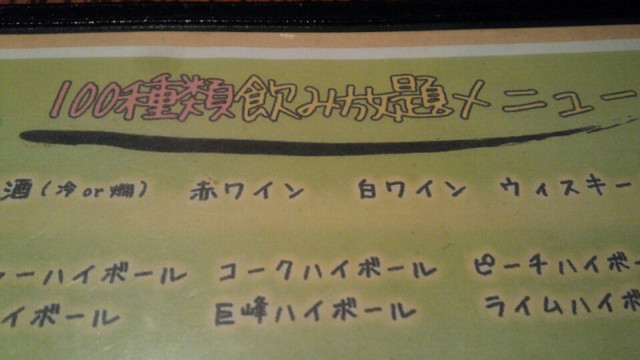 100種類飲み放題メニュー
酒(冷or燗) 赤ワイン 白ワイン ウィスキー
ーハイボール コークハイボール ピーチハイボー
イボール 巨峰ハイボール ライムハイボ